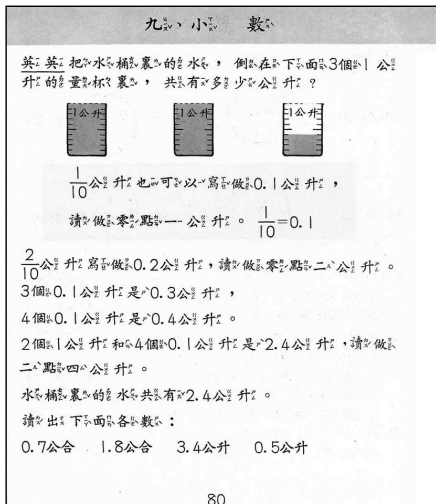 九、小數
英英把水桶裏的水，倒在下面3個1公
升的量杯裏，共有多少公升？
1公升 1公升 1公升
1/10公升也可以寫做0.1公升，
讀做零點一公升。 1/10=0.1
2/10公升寫做0.2公升，讀做零點二公升。
3個0.1公升是0.3公升，
4個0.1公升是0.4公升。
2個1公升和4個0.1公升是2.4公升，讀做
二點四公升。
水桶裏的水共有2.4公升。
讀出下面各數：
0.7公合 1.8公合 3.4公升 0.5公升
80